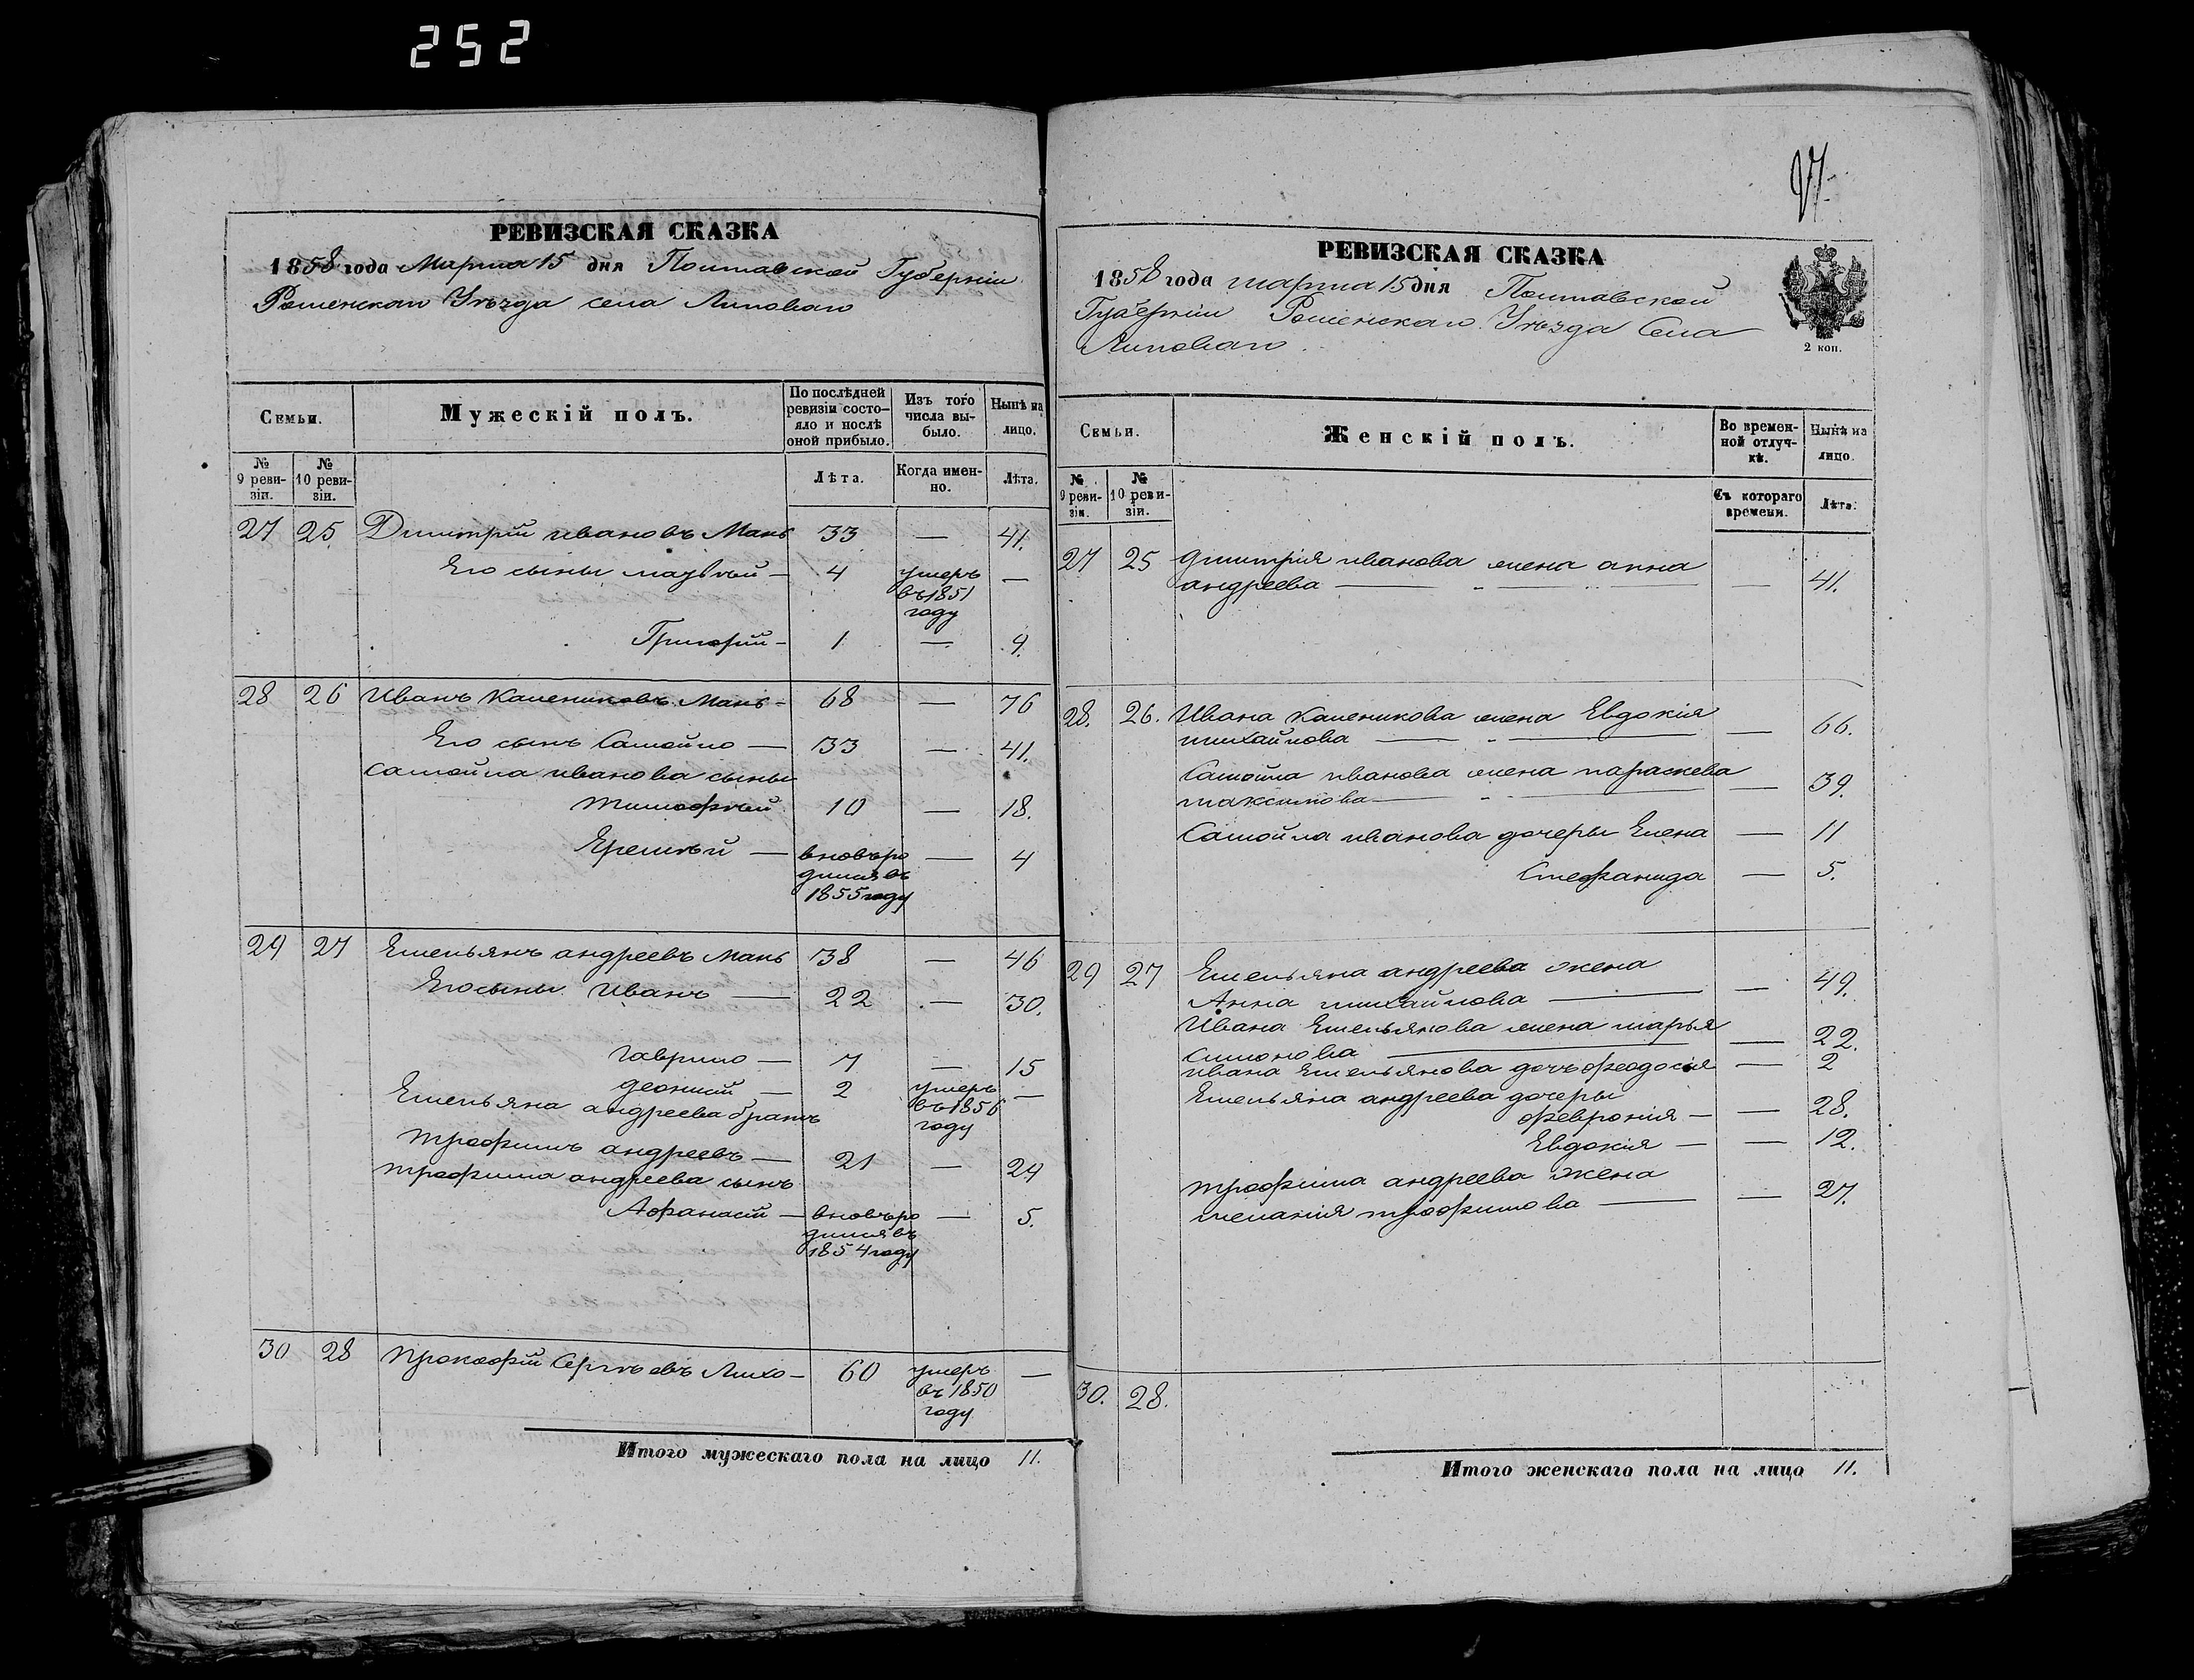 252
РЕВИЗСКАЯ СКАЗКА
1858 года Марта 15 дня Полтавской Губерніи
Роменскаго Уѣзда села Липоваго
Семьи.
Мужескій полъ.
По послѣдней ревизіи состояло и послѣ оной прибыло.
Изъ того числа выбыло.
Нынѣ на лицо.
№ 9 ревизіи.
№ 10 ревизіи.
Лѣта.
Когда именно.
Лѣта.
27 25. Димитрій ивановъ Мань 33 — 41.
Его сыны — 4 умеръ въ 1851 году —
Григорій — 1 — 9.
28 26 Иванъ Калениковъ Мань — 68 — 76
Его сынъ Самойло — 33 — 41.
Самойла иванова сыны
тимофѣй 10 — 18.
Яремѣй — вновь родился въ 1855 году — 4
29 27 Емельянъ андреевъ Мань 38 — 46
Его сыны Иванъ — 22 — 30.
гаврило — 7 — 15
деонисій — 2 умеръ въ 1856 году —
Емельяна андреева братъ
трофимъ андреевъ — 21 — 29
трофима андреева сынъ
Афанасій — вновь родился въ 1854 году — 5.
30 28 Прокофій Сергѣевъ Лихо — 60 умеръ въ 1850 году —
Итого мужескаго пола на лицо 11.
РЕВИЗСКАЯ СКАЗКА
1858 года марта 15 дня Полтавской
Губерніи Роменскаго Уѣзда Села
Липоваго.
2 коп.
Семьи.
Женскій полъ.
Во временной отлучкѣ.
Нынѣ на лицо.
№ 9 ревизіи.
№ 10 ревизіи.
Съ котораго времени.
Лѣта.
27 25 дмитрія иванова жена анна
андреева — — 41.
28. 26. Ивана Каленикова жена Евдокія
михайлова — — 66.
Самойла иванова жена параскева
максимова — — 39.
Самойла иванова дочеры Елена — 11
Стефанида — 5.
29 27 Емельяна андреева жена
Анна михайлова — — 49.
Ивана Емельянова жена марья
симонова — — 22.
ивана Емельянова дочь феодосія — 2
Емельяна андреева дочеры
феврония — — 28.
Евдокія — — 12.
трофима андреева жена
меланія трофимова — — 27.
30. 28.
Итого женскаго пола на лицо 11.